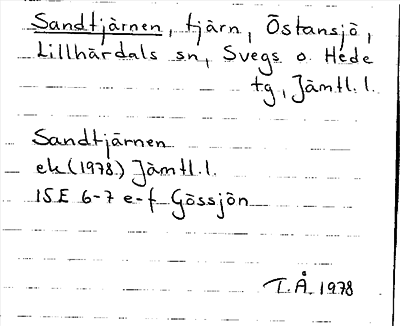 Sandtjärnen, tjärn, Östansjö,
Lillhärdals sn, Svegs o. Hede
tg, Jämtl. l.
Sandtjärnen
ek (1978) Jämtl. l.
15E 6-7 e-f Gössjön
T. Å. 1978